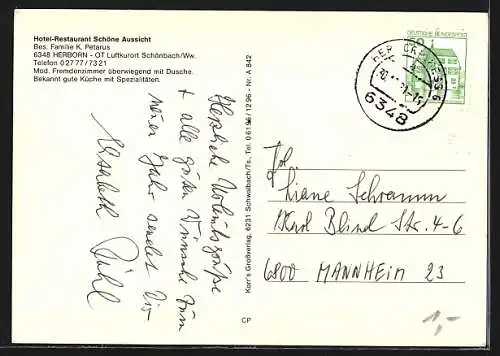 Hotel-Restaurant Schöne Aussicht
Bes. Familie K. Petarus
6348 HERBORN - OT Luftkurort Schönbach/Ww.
Telefon 0 27 77 / 73 21
Mod. Fremdenzimmer überwiegend mit Dusche.
Bekannt gute Küche mit Spezialitäten.
Herzliche Urlaubsgrüße
+ alle guten Wünsche zum
neuen Jahr sendet Dir
Elisabeth
Korr's Großverlag, 6231 Schwalbach/Ts., Tel. 0 61 96 / 12 96 - Nr. A 842
CP
DEUTSCHE BUNDESPOST
6348
Liane Schramm
Karl Blind Str. 4-6
6800 MANNHEIM 23
1,-